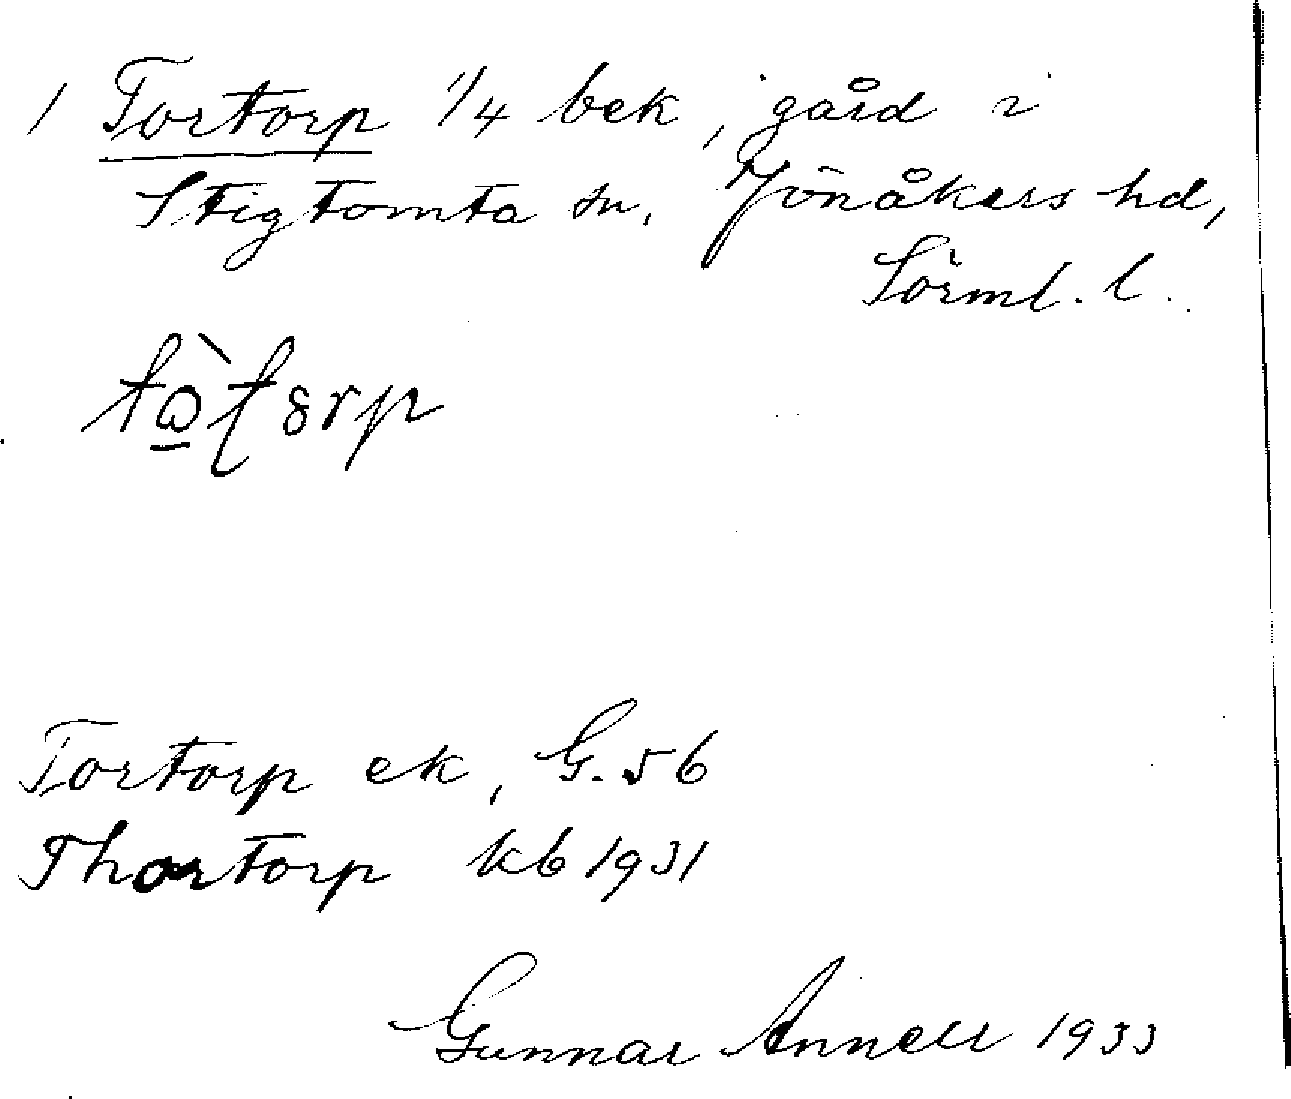 1 Tortorp 1/4 bek, gård i
Stigtomta sn, Jönåkers hd,
Sörml. l.
Tortorp ek, G. 56
Thortorp kb 1931
Gunnar Annell 1933